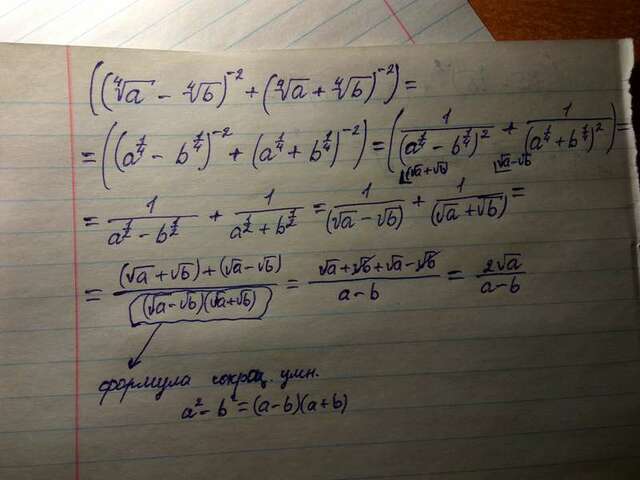 ((⁴√a - ⁴√b)⁻² + (⁴√a + ⁴√b)⁻²) =
= ((a^{1/4} - b^{1/4})⁻² + (a^{1/4} + b^{1/4})⁻²) = (1/(a^{1/4} - b^{1/4})² + 1/(a^{1/4} + b^{1/4})²) =
(√a+√b) √a-√b
= 1/(a^{1/2} - b^{1/2}) + 1/(a^{1/2} + b^{1/2}) = 1/(√a - √b) + 1/(√a + √b) =
= ((√a + √b) + (√a - √b))/((√a - √b)(√a + √b)) = (√a + √b + √a - √b)/(a - b) = 2√a/(a - b)
формула сокращ. умн.
a² - b² = (a - b)(a + b)